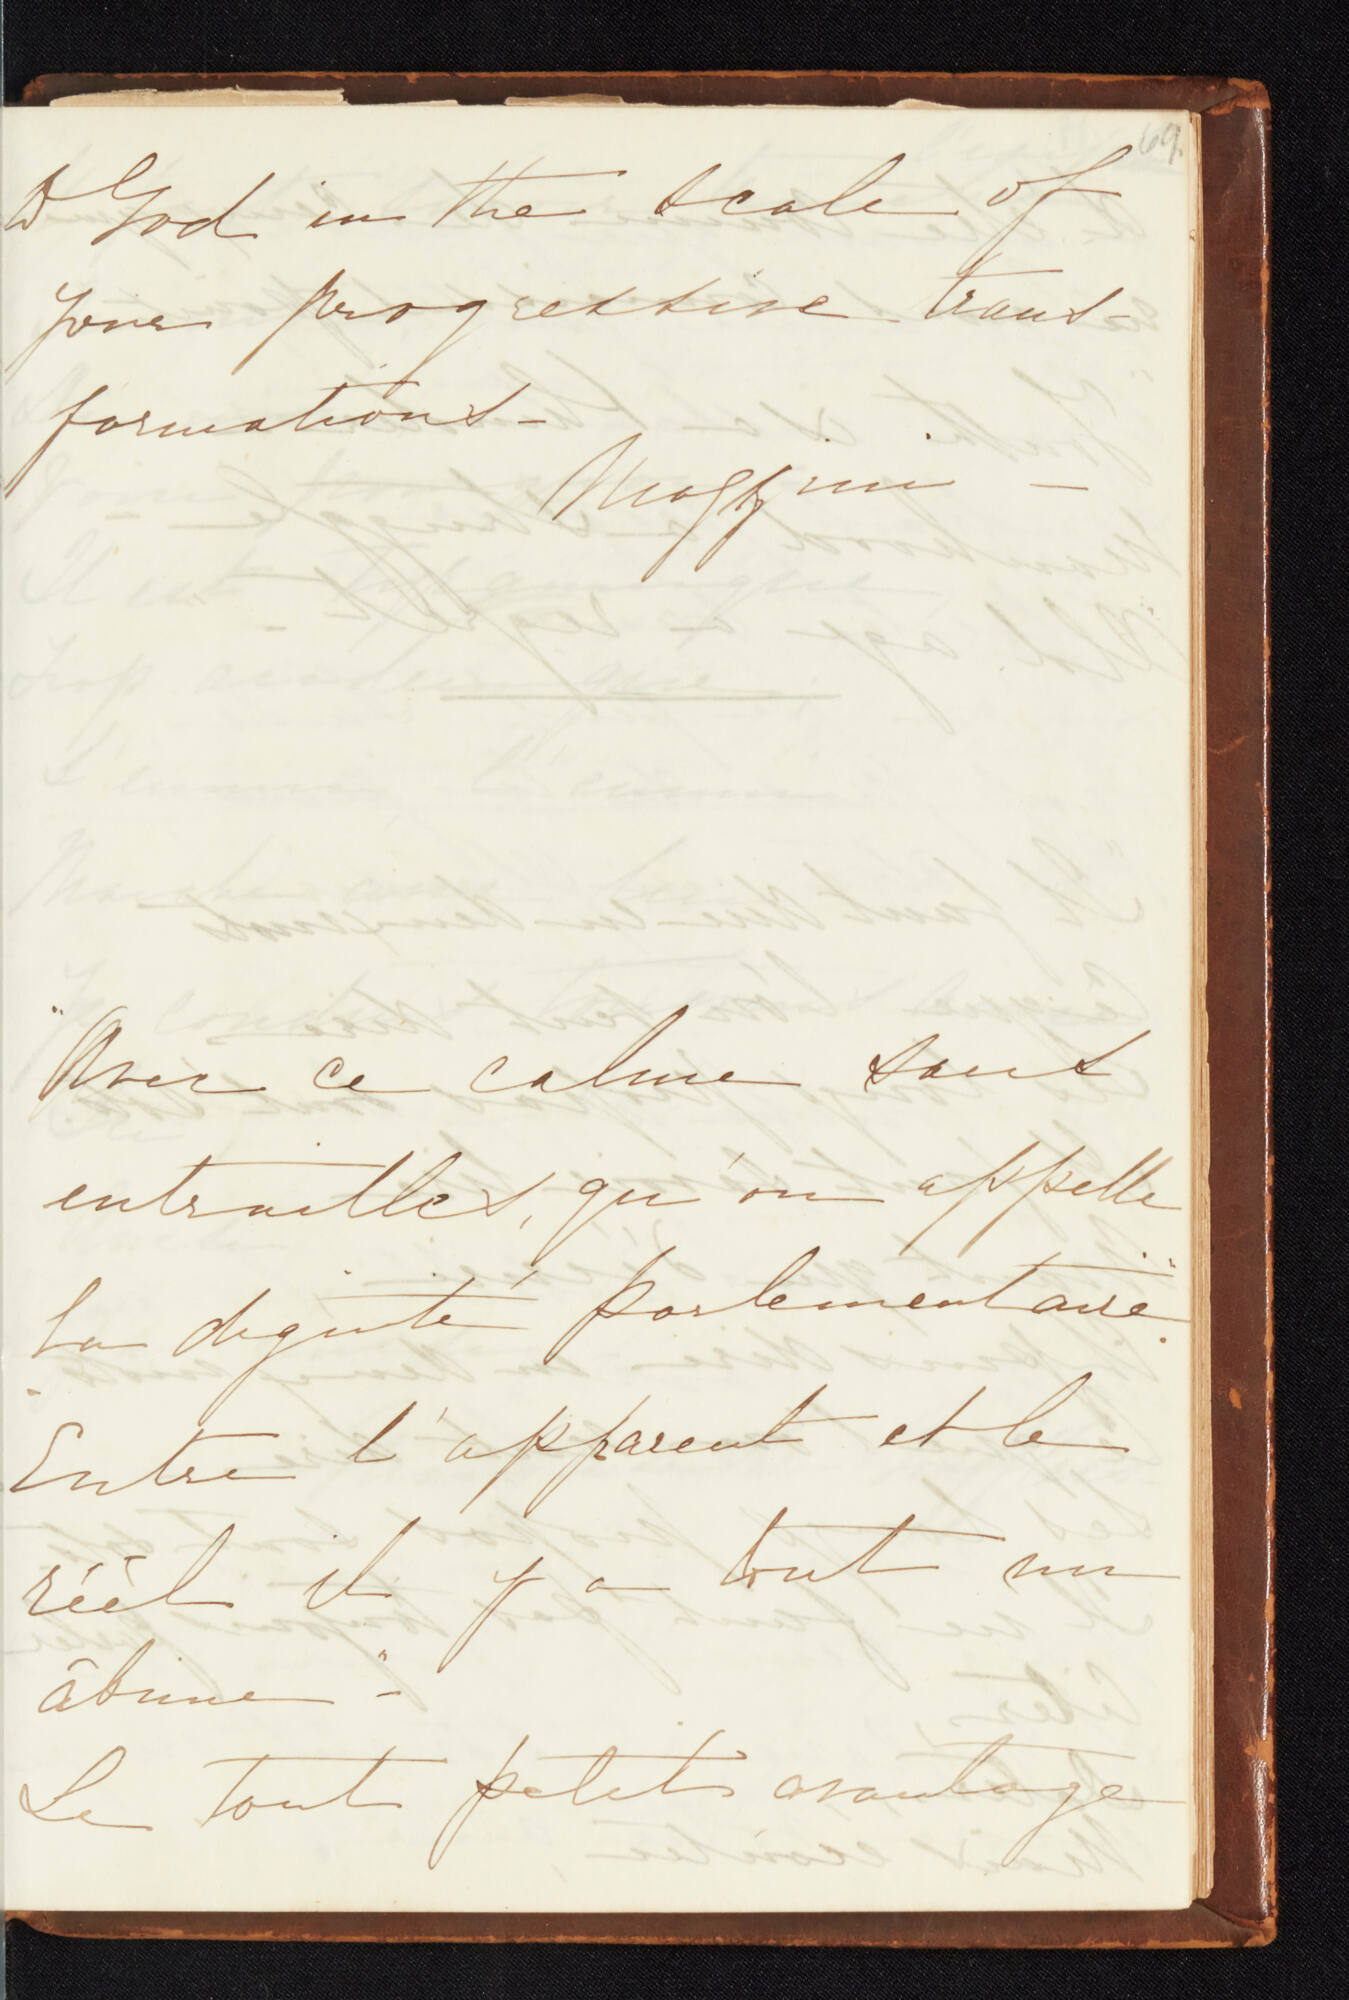 69.
to God in the scale of
your progressive trans-
formations -
Mazzini -
"Avec ce calme sans
entrailles, qu'on appelle
la dignité parlementaire".
"Entre l'apparent et le
réèl il y a tout un
âbime" -
Le tout petit avantage